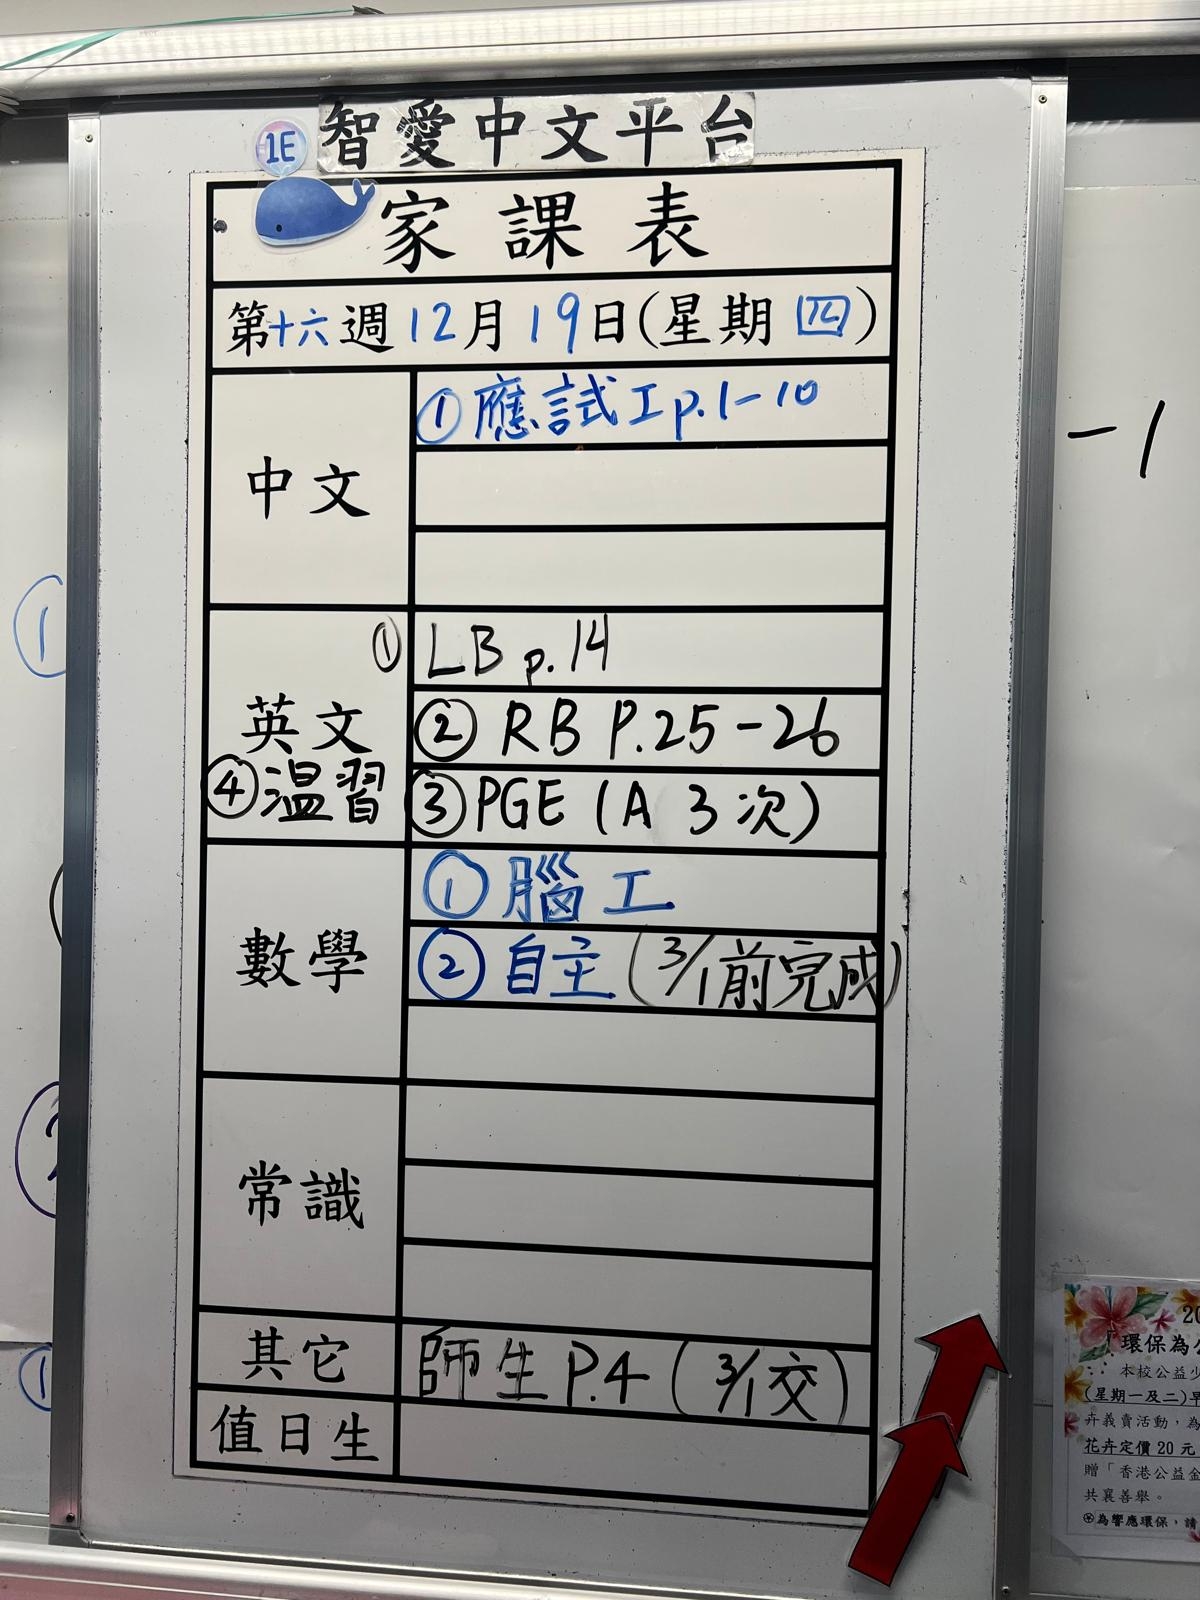 智愛中文平台
1E
家課表
第十六週12月19日(星期四)
中文
①應試工p.1-10
英文
①LB p.14
②RB P.25-26
③PGE(A 3次)
④温習
數學
①腦工
②自主(3/1前完成)
常識
其它
師生P.4(3/1交)
值日生
-1
①
2
①
20
「環保為公
本校公益少
(星期一及二)早
卉義賣活動，為
花卉定價20元
贈「香港公益金
共襄善舉。
為響應環保，請